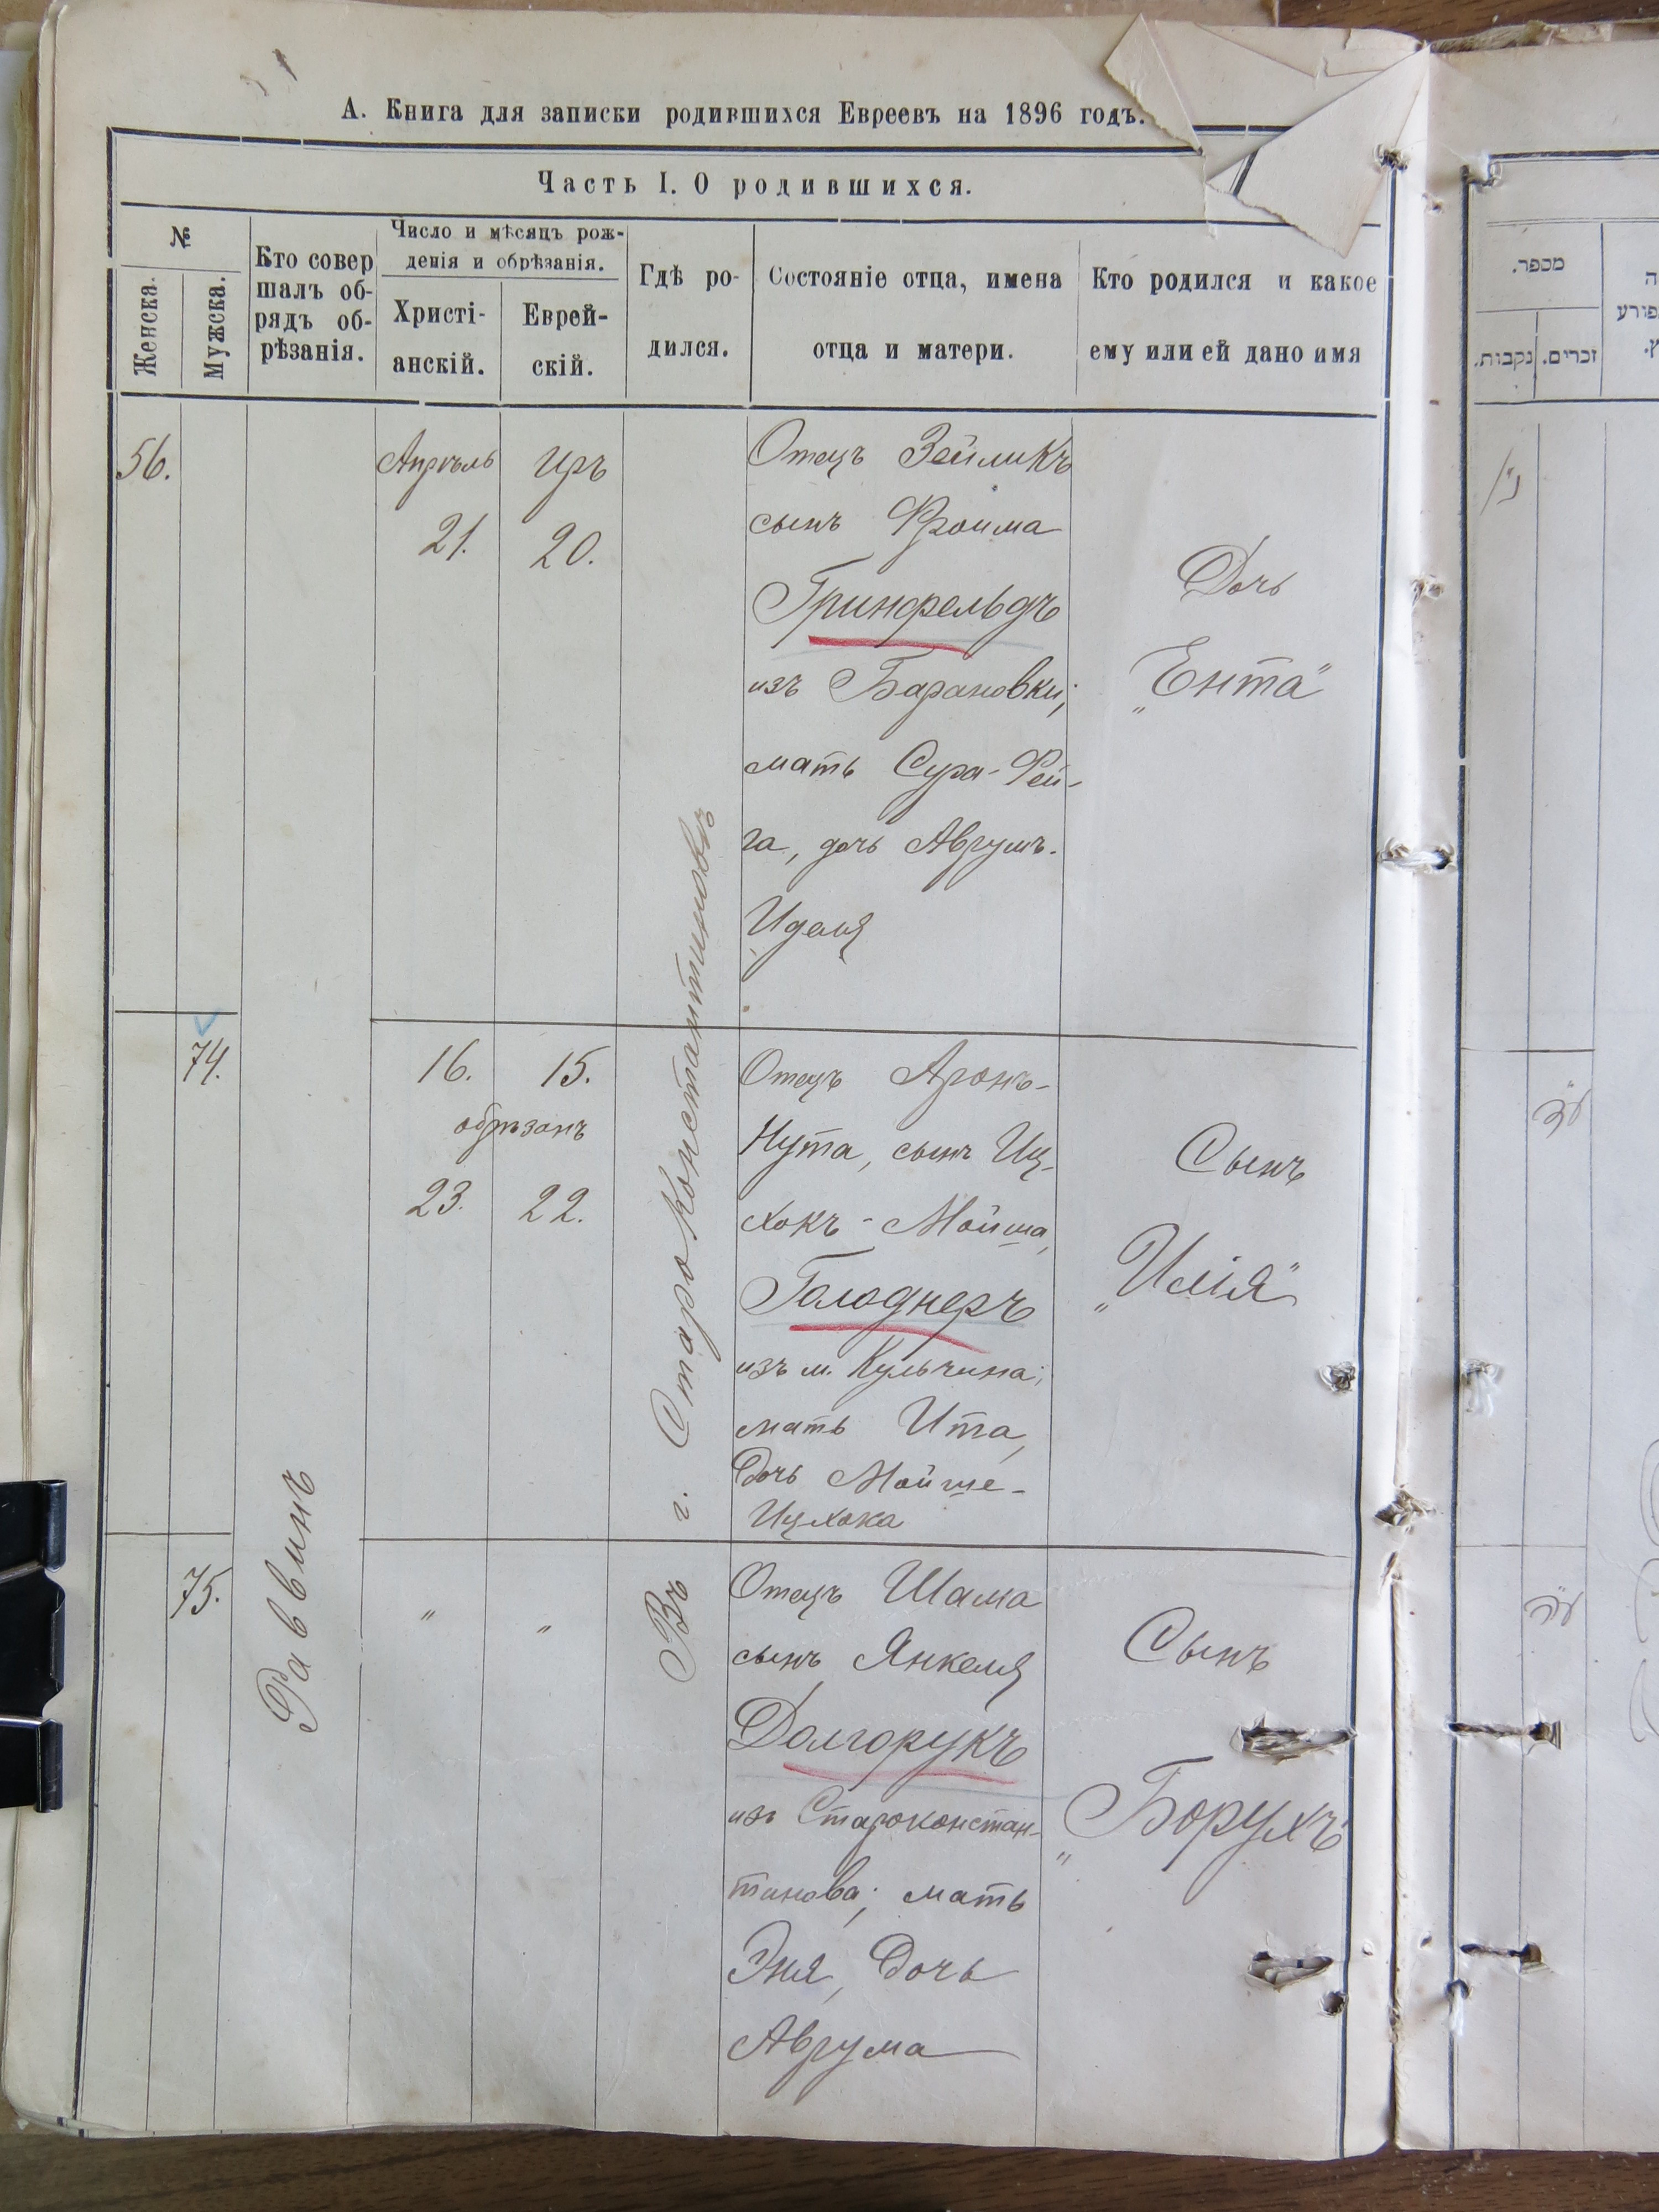 А. Книга для записки родившихся Евреевъ на 1896 годъ.
Часть I. О родившихся.
№
Женска.
Мужска.
Кто совер
шалъ об-
рядъ об-
рѣзанія.
Число и мѣсяцъ рож-
денія и обрѣзанія.
Христі-
анскій.
Еврей-
скій.
Гдѣ ро-
дился.
Состояніе отца, имена
отца и матери.
Кто родился и какое
ему или ей дано имя
56.
Апрѣль
21.
Иръ
20.
Отецъ Зейликъ
сынъ Фроима
Гринфельдъ
изъ Барановки;
мать Сура-Рей-
га, дочь Аврумъ-
Иделя
Дочь
„Ента"
74.
16.
15.
обрѣзанъ
23.
22.
Отецъ Аронъ-
Нута, сынъ Иц-
хокъ-Мойша,
Голоднеръ
изъ м. Кульчина;
мать Ита,
дочь Мойше-
Ицхока
Сынъ
„Илія"
75.
"
"
Отецъ Шама
сынъ Янкеля
Долгорукъ
изъ Староконстан-
тинова; мать
Эня, дочь
Аврума
Сынъ
„Борухъ"
Раввинъ
Въ г. Староконстантиновѣ
מספר.
נקבות.
זכרים.
נ״ו
ע״ד
ע״ה